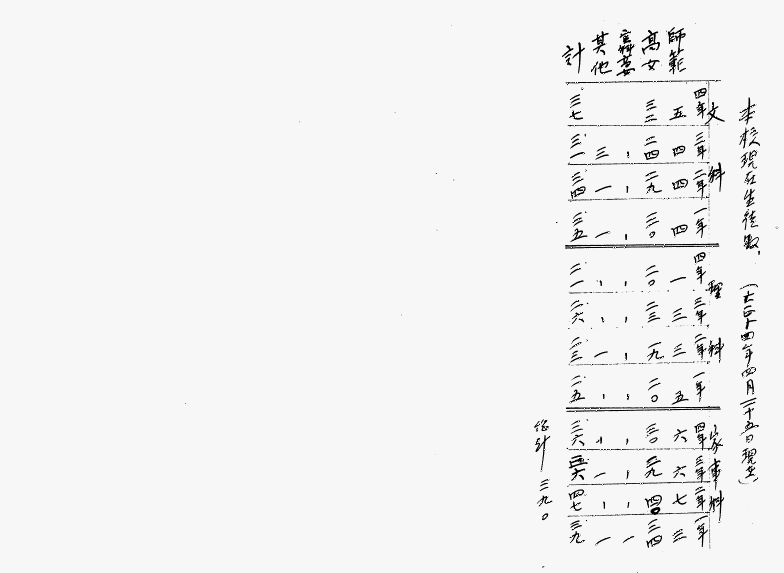 本校現在生徒数、(大正十四年四月二十五日現在)
文科 理科 家事科
四年 三年 二年 一年 四年 三年 二年 一年 四年 三年 二年 一年
師範 五 四 四 四 一 三 三 五 六 六 七 三
高女 三二 二四 二九 三〇 二〇 二三 一九 二〇 三〇 二九 四〇 三四
、 、 、 、 、 、 、 、 、 、 一
其他 三 一 一 、 、 一 、 、 一 、 一
計 三七 三一 三四 三五 二一 二六 二三 二五 三六 三六 四七 三九
総計 三九〇